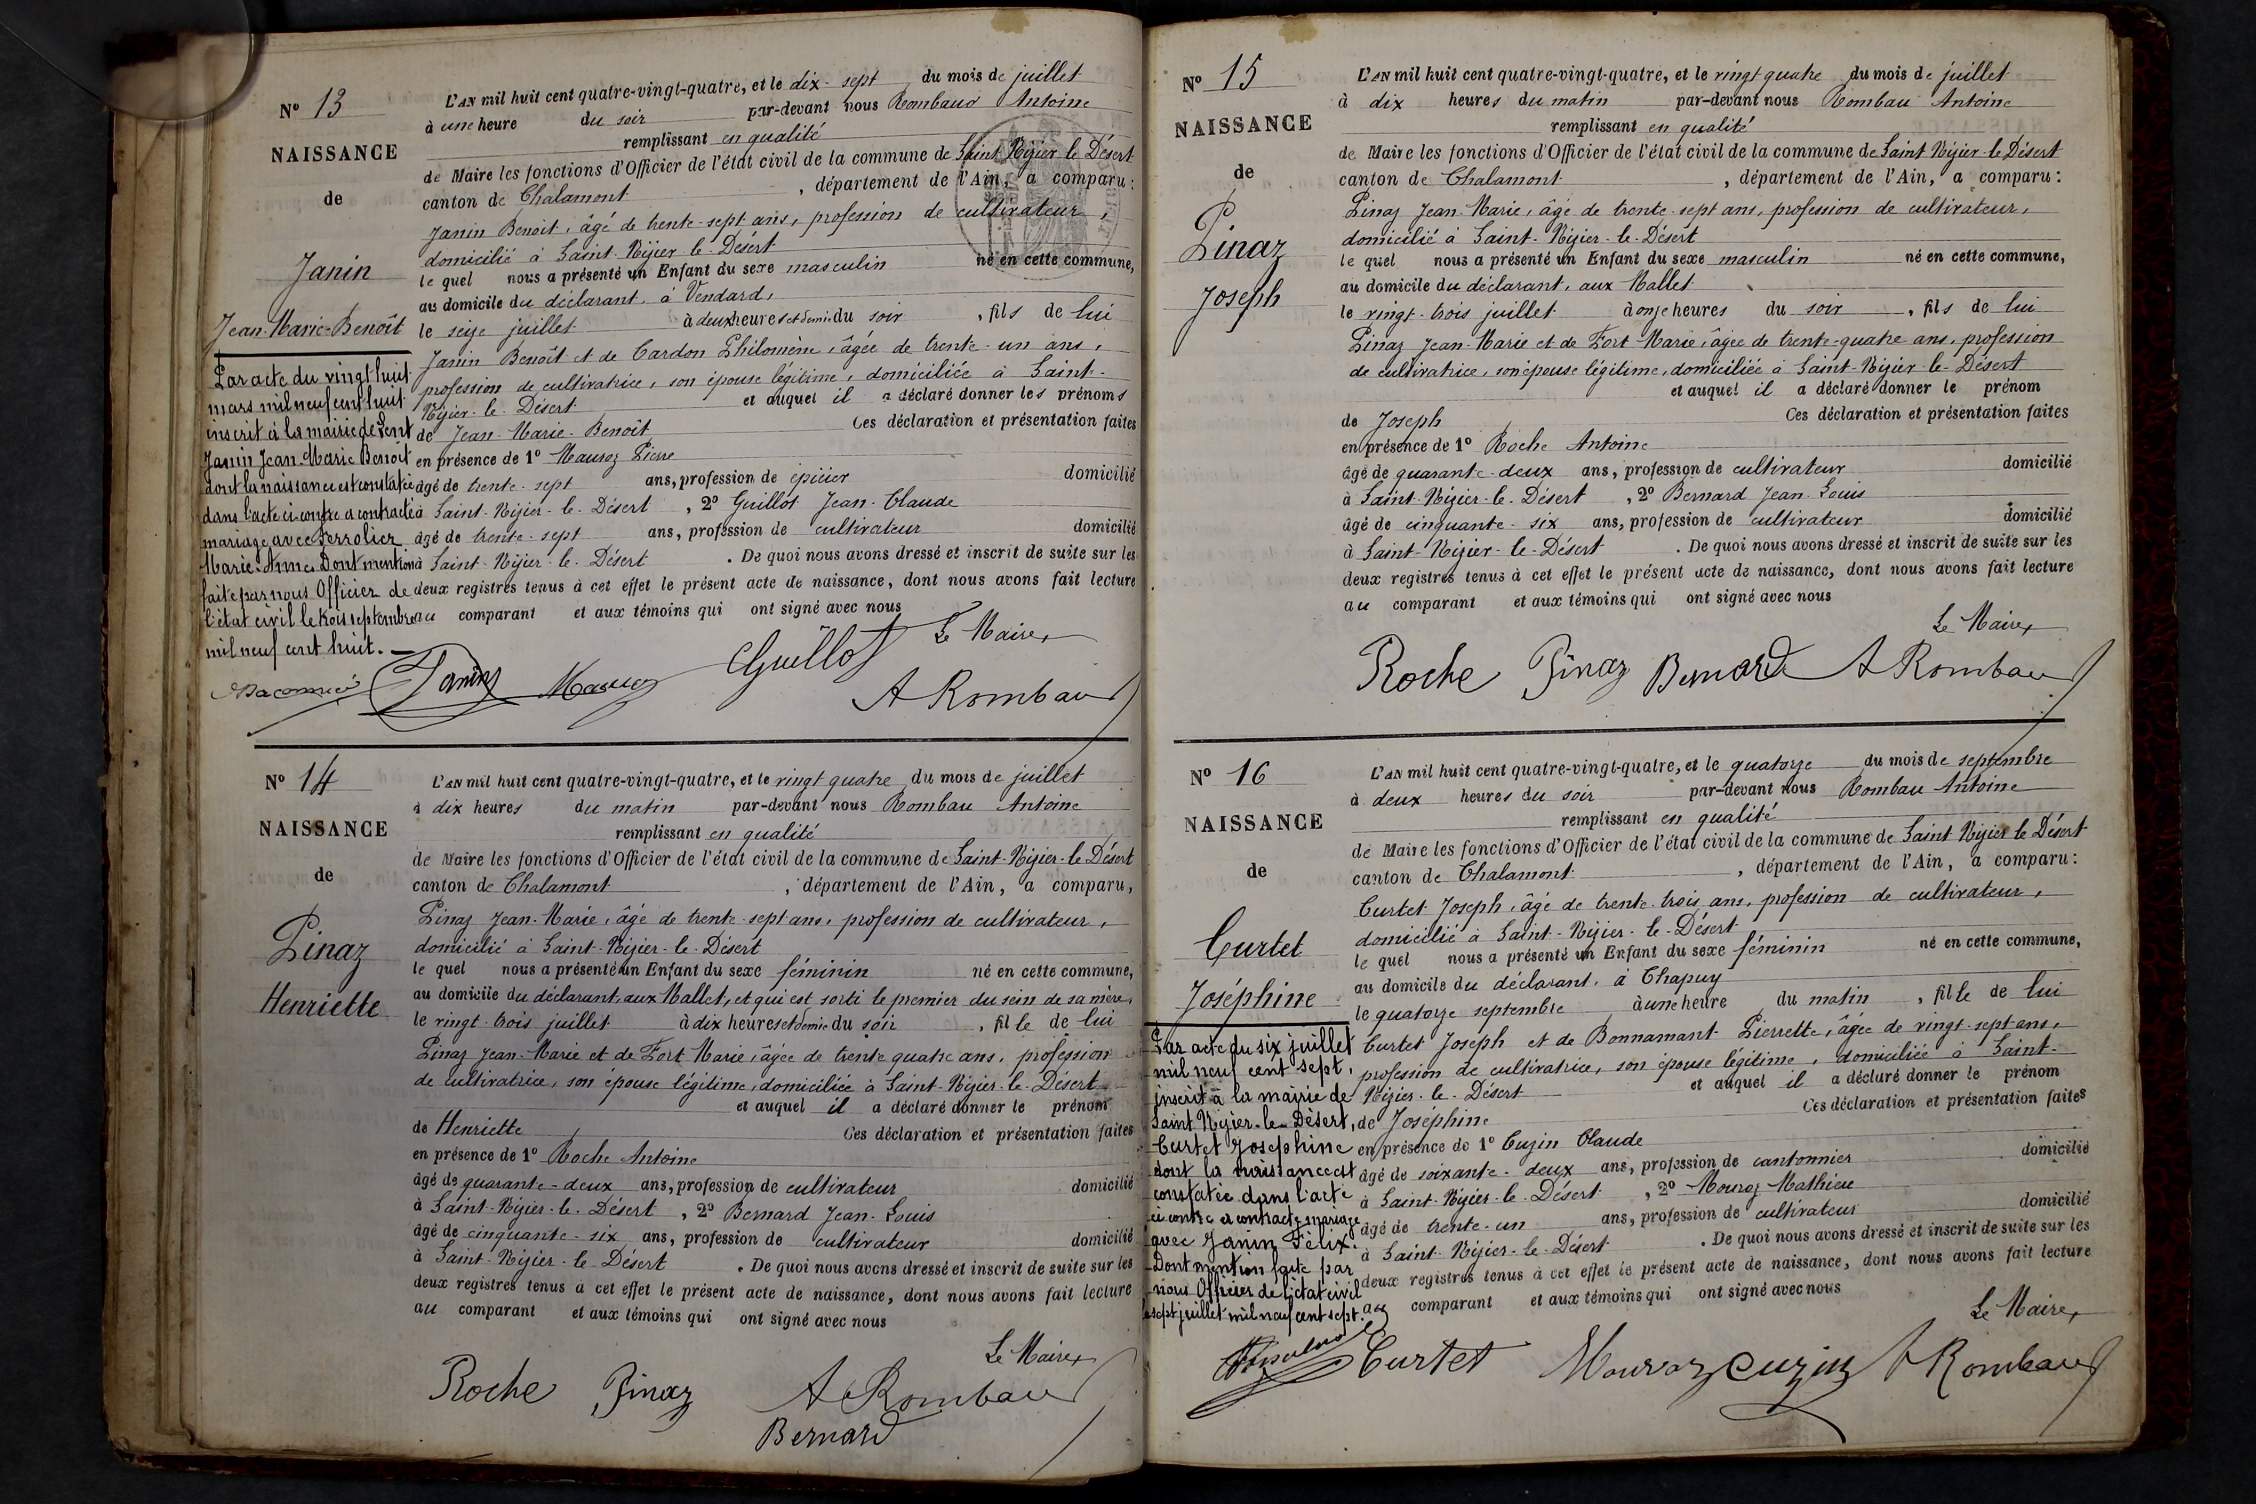 N° 13
NAISSANCE
de
Janin
Jean-Marie-Benoît
Par acte du vingt huit
mars mil neuf cent huit
inscrit à la mairie de Lent
Janin Jean-Marie Benoît
dont la naissance est constatée
dans l'acte ci-contre a contracté
mariage avec Ferrolier
Marie-Aimée. Dont mention
faite par nous Officier de
l'état civil le trois septembre
mil neuf cent huit.
L'AN mil huit cent quatre-vingt-quatre, et le dix-sept du mois de juillet
à une heure du soir par-devant nous Rombaud Antoine
remplissant en qualité
de Maire les fonctions d'Officier de l'état civil de la commune de Saint Nizier le Désert
canton de Chalamont, département de l'Ain, a comparu:
Janin Benoit, âgé de trente-sept ans, profession de cultivateur,
domicilié à Saint-Nizier-le-Désert
le quel nous a présenté un Enfant du sexe masculin né en cette commune,
au domicile du déclarant, à Vendard,
le seize juillet à deux heures et demie du soir, fils de lui
Janin Benoît et de Cardon Philomène, âgée de trente-un ans,
profession de cultivatrice, son épouse légitime, domiciliée à Saint-
Nizier-le-Désert et auquel il a déclaré donner les prénoms
de Jean-Marie-Benoît Ces déclaration et présentation faites
en présence de 1° Mauroz Pierre
âgé de trente-sept ans, profession de épicier domicilié
à Saint-Nizier-le-Désert, 2° Guillot Jean-Claude
âgé de trente-sept ans, profession de cultivateur domicilié
à Saint-Nizier-le-Désert. De quoi nous avons dressé et inscrit de suite sur les
deux registres tenus à cet effet le présent acte de naissance, dont nous avons fait lecture
au comparant et aux témoins qui ont signé avec nous
Le Maire,
Janin Guillot
A Rombaud
N° 14
NAISSANCE
de
Pinaz
Henriette
L'AN mil huit cent quatre-vingt-quatre, et le vingt quatre du mois de juillet
à dix heures du matin par-devant nous Rombau Antoine
remplissant en qualité
de Maire les fonctions d'Officier de l'état civil de la commune de Saint-Nizier-le Désert
canton de Chalamont, département de l'Ain, a comparu,
Pinaz Jean-Marie, âgé de trente-sept ans, profession de cultivateur,
domicilié à Saint-Nizier-le-Désert
le quel nous a présenté un Enfant du sexe féminin né en cette commune,
au domicile du déclarant, aux Mallet, et qui est sorti le premier du sein de sa mère,
le vingt-trois juillet à dix heures et demie du soir, fille de lui
Pinaz Jean-Marie et de Fort Marie, âgée de trente quatre ans, profession
de cultivatrice, son épouse légitime, domiciliée à Saint-Nizier-le-Désert
et auquel il a déclaré donner le prénom
de Henriette Ces déclaration et présentation faites
en présence de 1° Roche Antoine
âgé de quarante-deux ans, profession de cultivateur domicilié
à Saint-Nizier-le-Désert, 2° Bernard Jean-Louis
âgé de cinquante-six ans, profession de cultivateur domicilié
à Saint-Nizier-le-Désert. De quoi nous avons dressé et inscrit de suite sur les
deux registres tenus à cet effet le présent acte de naissance, dont nous avons fait lecture
au comparant et aux témoins qui ont signé avec nous
Le Maire,
Roche Pinaz A Rombau
Bernard
N° 15
NAISSANCE
de
Pinaz
Joseph
L'AN mil huit cent quatre-vingt-quatre, et le vingt quatre du mois de juillet
à dix heures du matin par-devant nous Rombau Antoine
remplissant en qualité
de Maire les fonctions d'Officier de l'état civil de la commune de Saint Nizier-le Désert
canton de Chalamont, département de l'Ain, a comparu:
Pinaz Jean-Marie, âgé de trente-sept ans, profession de cultivateur,
domicilié à Saint-Nizier-le-Désert
le quel nous a présenté un Enfant du sexe masculin né en cette commune,
au domicile du déclarant, aux Mallet
le vingt-trois juillet à onze heures du soir, fils de lui
Pinaz Jean-Marie et de Fort Marie, âgée de trente-quatre ans, profession
de cultivatrice, son épouse légitime, domiciliée à Saint-Nizier-le-Désert
et auquel il a déclaré donner le prénom
de Joseph Ces déclaration et présentation faites
en présence de 1° Roche Antoine
âgé de quarante-deux ans, profession de cultivateur domicilié
à Saint-Nizier-le-Désert, 2° Bernard Jean-Louis
âgé de cinquante-six ans, profession de cultivateur domicilié
à Saint-Nizier-le-Désert. De quoi nous avons dressé et inscrit de suite sur les
deux registres tenus à cet effet le présent acte de naissance, dont nous avons fait lecture
au comparant et aux témoins qui ont signé avec nous
Le Maire,
Roche Pinaz Bernard A Rombau
N° 16
NAISSANCE
de
Curtet
Joséphine
Par acte du six juillet
mil neuf cent sept,
inscrit à la mairie de
Saint Nizier-le-Désert,
Curtet Joséphine
dont la naissance est
constatée dans l'acte
ci contre a contracté mariage
avec Janin Félix.
Dont mention faite par
nous Officier de l'état civil
le sept juillet mil neuf cent sept.
L'AN mil huit cent quatre-vingt-quatre, et le quatorze du mois de septembre
à deux heures du soir par-devant nous Rombau Antoine
remplissant en qualité
de Maire les fonctions d'Officier de l'état civil de la commune de Saint Nizier le Désert
canton de Chalamont, département de l'Ain, a comparu:
Curtet Joseph, âgé de trente-trois ans, profession de cultivateur,
domicilié à Saint-Nizier-le-Désert
le quel nous a présenté un Enfant du sexe féminin né en cette commune,
au domicile du déclarant, à Chapuy
le quatorze septembre à une heure du matin, fille de lui
Curtet Joseph et de Bonnamant Pierrette, âgée de vingt-sept ans,
profession de cultivatrice, son épouse légitime, domiciliée à Saint-
Nizier-le-Désert et auquel il a déclaré donner le prénom
de Joséphine Ces déclaration et présentation faites
en présence de 1° Cuzin Claude
âgé de soixante-deux ans, profession de cantonnier domicilié
à Saint-Nizier-le-Désert, 2° Mouroz Mathieu
âgé de trente-un ans, profession de cultivateur domicilié
à Saint-Nizier-le-Désert. De quoi nous avons dressé et inscrit de suite sur les
deux registres tenus à cet effet le présent acte de naissance, dont nous avons fait lecture
au comparant et aux témoins qui ont signé avec nous
Le Maire,
Curtet Mouroz Cuzin A Rombau